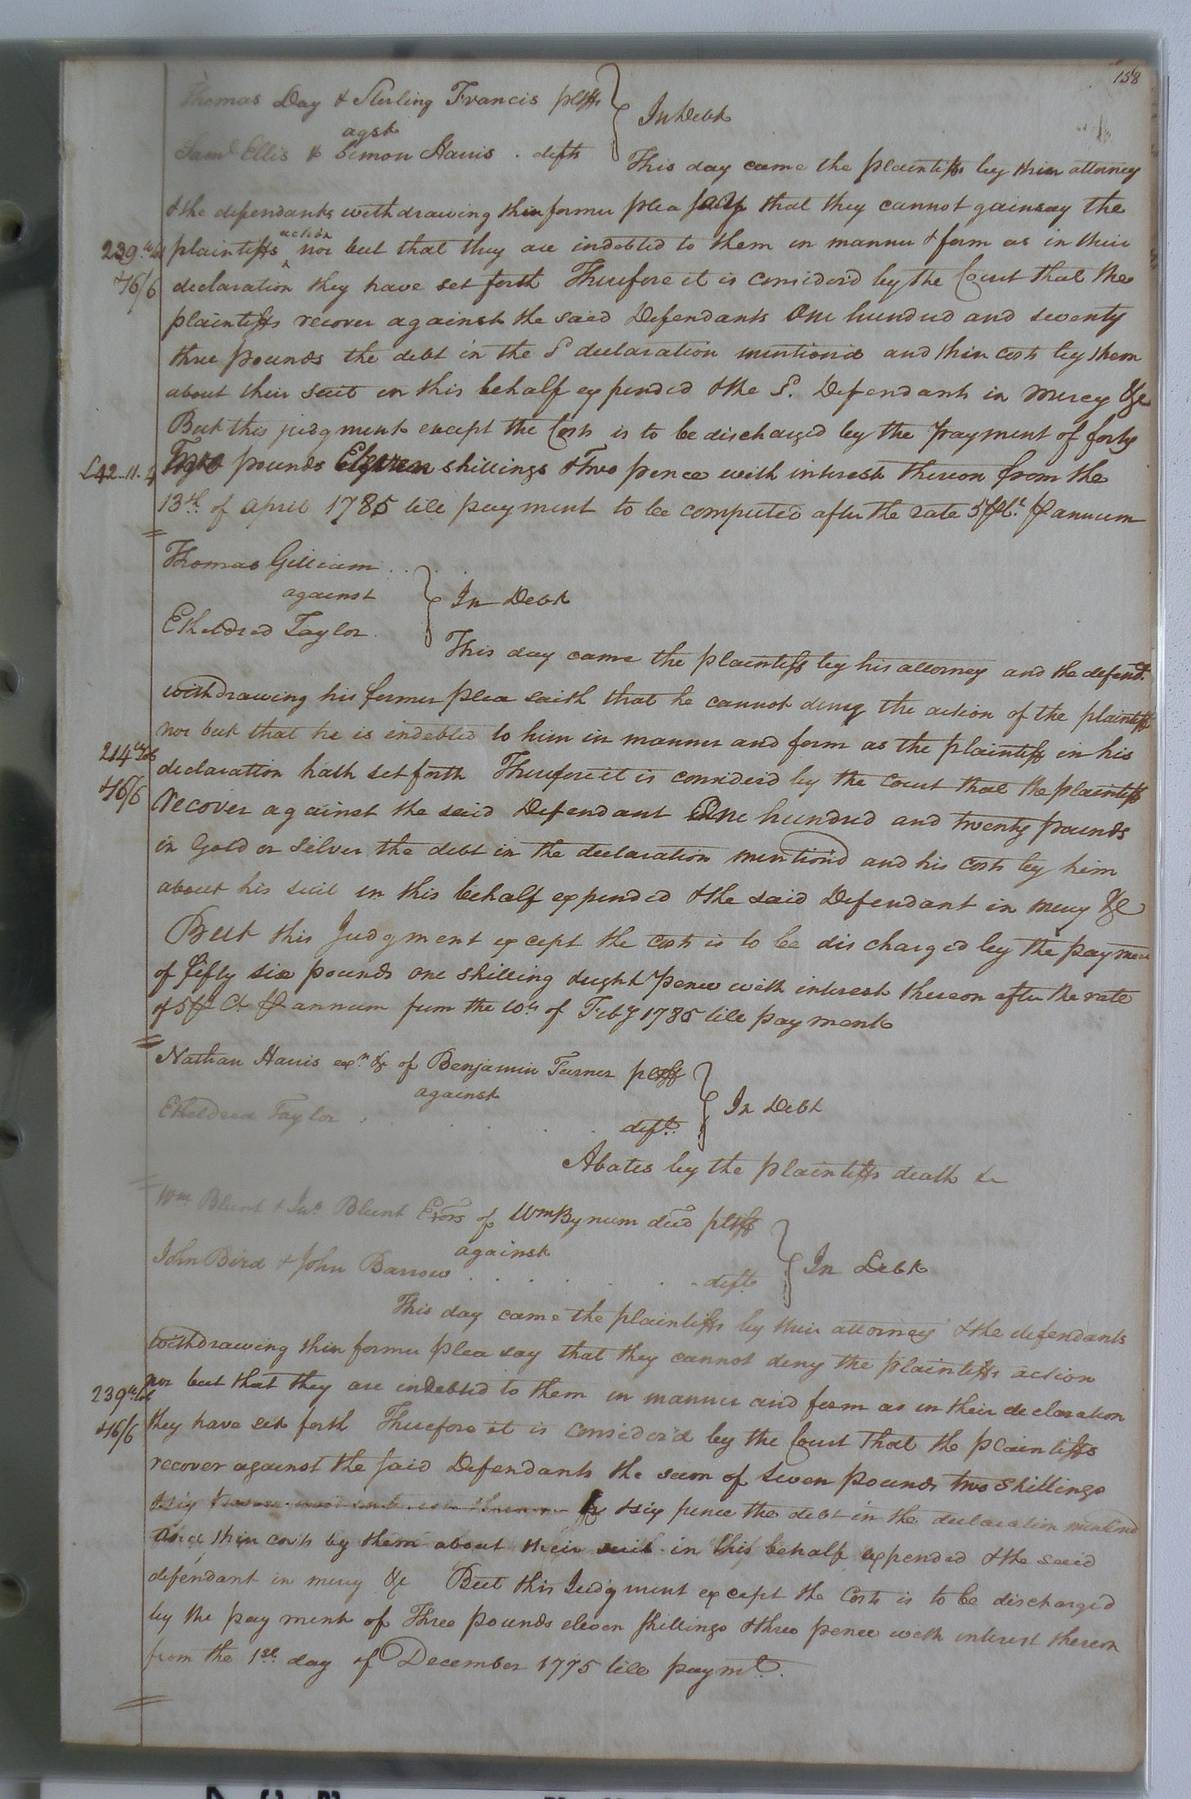 158
Thomas Day & Sterling Francis pltffs
agst
Saml Ellis & Simon Harris . defts
In Debt
This day came the plaintiffs by their attorney
& the defendants withdrawing their former plea say that they cannot gainsay the
plaintiffs action nor but that they are indebted to them in manner & form as in their
239
46/6
declaration they have set forth Therefore it is consider'd by the Court that the
plaintiffs recover against the said Defendants One hundred and seventy
three pounds the debt in the Sd declaration mentiond and their costs by them
about their suit in this behalf expended & the Sd. Defendants in mercy &c
But this judgment except the Costs is to be discharged by the payment of forty
£42.11.2
Two pounds Eleven shillings & Two pence with interest thereon from the
13th of April 1785 till payment to be computed after the rate 5 pCt. p annum
Thomas Gilliam . . .
against
Etheldred Taylor .
In Debt
This day came the plaintiff by his attorney and the defendt
withdrawing his former plea saith that he cannot deny the action of the plaintiff
nor but that he is indebted to him in manner and form as the plaintiff in his
214
46/6
declaration hath set forth Therefore it is consider'd by the Court that the plaintiff
recover against the said Defendant One hundred and twenty pounds
in Gold or Silver the debt in the declaration mention'd and his costs by him
about his suit in this behalf expended & the said Defendant in mercy &c
But this Judgment except the costs is to be discharged by the payment
of fifty six pounds one shilling & eight Pence with interest thereon after the rate
of 5 p Ct p annum from the 10th of Feby 1785 till payment
Nathan Harris exr &c of Benjamin Turner pltff
against
Etheldred Taylor . . . . . . deft.
In Debt
Abates by the plaintiffs death &c
Wm Blunt & Jno Blunt Exors of Wm Bynum decd pltffs
against
John Bird & John Barrow . . . . . . defts
In Debt
This day came the plaintiffs by their attorney & the defendants
withdrawing their former plea say that they cannot deny the plaintiffs action
nor but that they are indebted to them in manner and form as in their declaration
239
46/6
they have set forth Therefore it is consider'd by the Court that the plaintiffs
recover against the said Defendants the sum of Seven pounds two shillings
& six pence the debt in the declaration mentiond
and their costs by them about their suit in this behalf expended & the said
defendant in mercy &c But this Judgment except the Costs is to be discharged
by the payment of Three pounds eleven shillings & three pence with interest thereon
from the 1st. day of December 1775 till paymt.